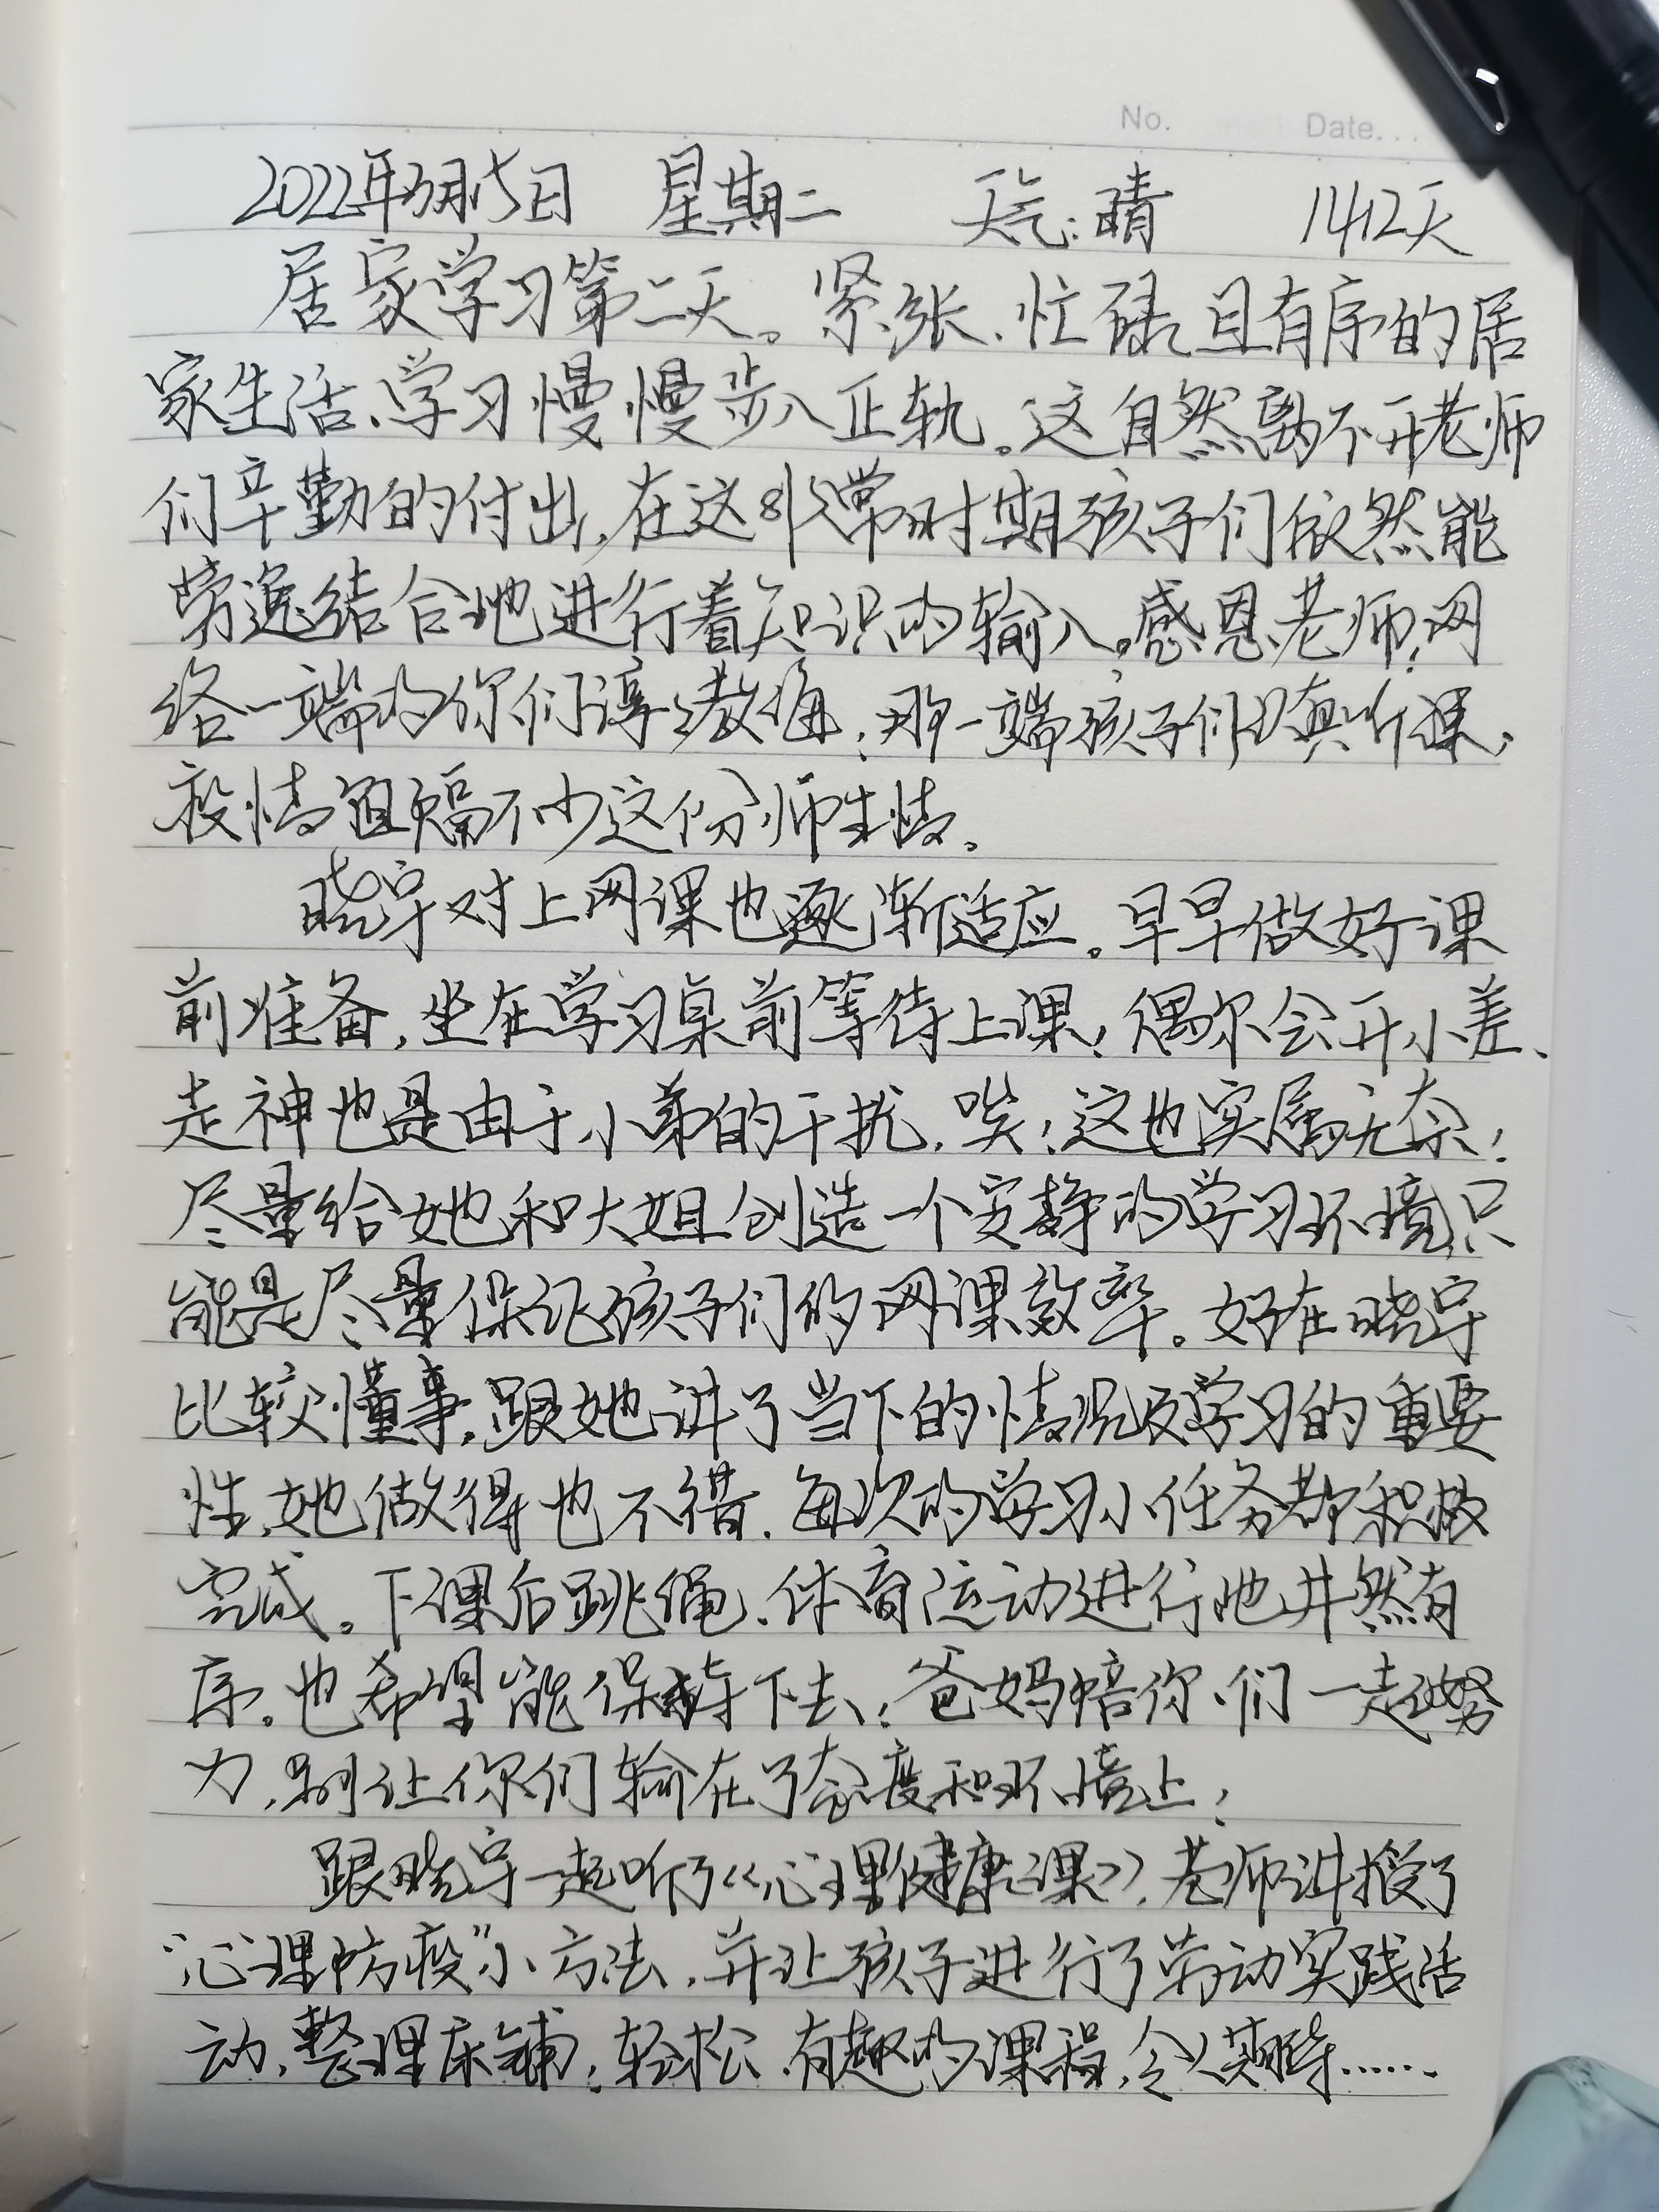 No. Date...
2022年3月15日 星期二 天气:晴 1412天
居家学习第二天。紧张、忙碌且有序的居
家生活、学习慢慢步入正轨。这自然离不开老师
们辛勤的付出,在这非常时期孩子们依然能
劳逸结合地进行着知识的输入。感恩老师!网
络一端的你们谆谆教诲;那一端孩子们认真听课,
疫情阻隔不少这份师生情。
晓宇对上网课也逐渐适应。早早做好课
前准备,坐在学习桌前等待上课;偶尔会开小差、
走神也是由于小弟的干扰,唉!这也实属无奈!
尽量给她和大姐创造一个安静的学习环境,只
能是尽量保证孩子们的网课效率。好在晓宇
比较懂事,跟她讲了当下的情况及学习的重要
性,她做得也不错,每次的学习小任务都积极
完成。下课后跳绳、体育运动进行地井然有
序。也希望能保持下去!爸妈陪你们一起努
力,别让你们输在了态度和环境上!
跟晓宇一起听了《心理健康课》,老师讲授了
“心理防疫”小方法,并让孩子进行了劳动实践活
动,整理床铺;轻松、有趣的课程,令人期待……